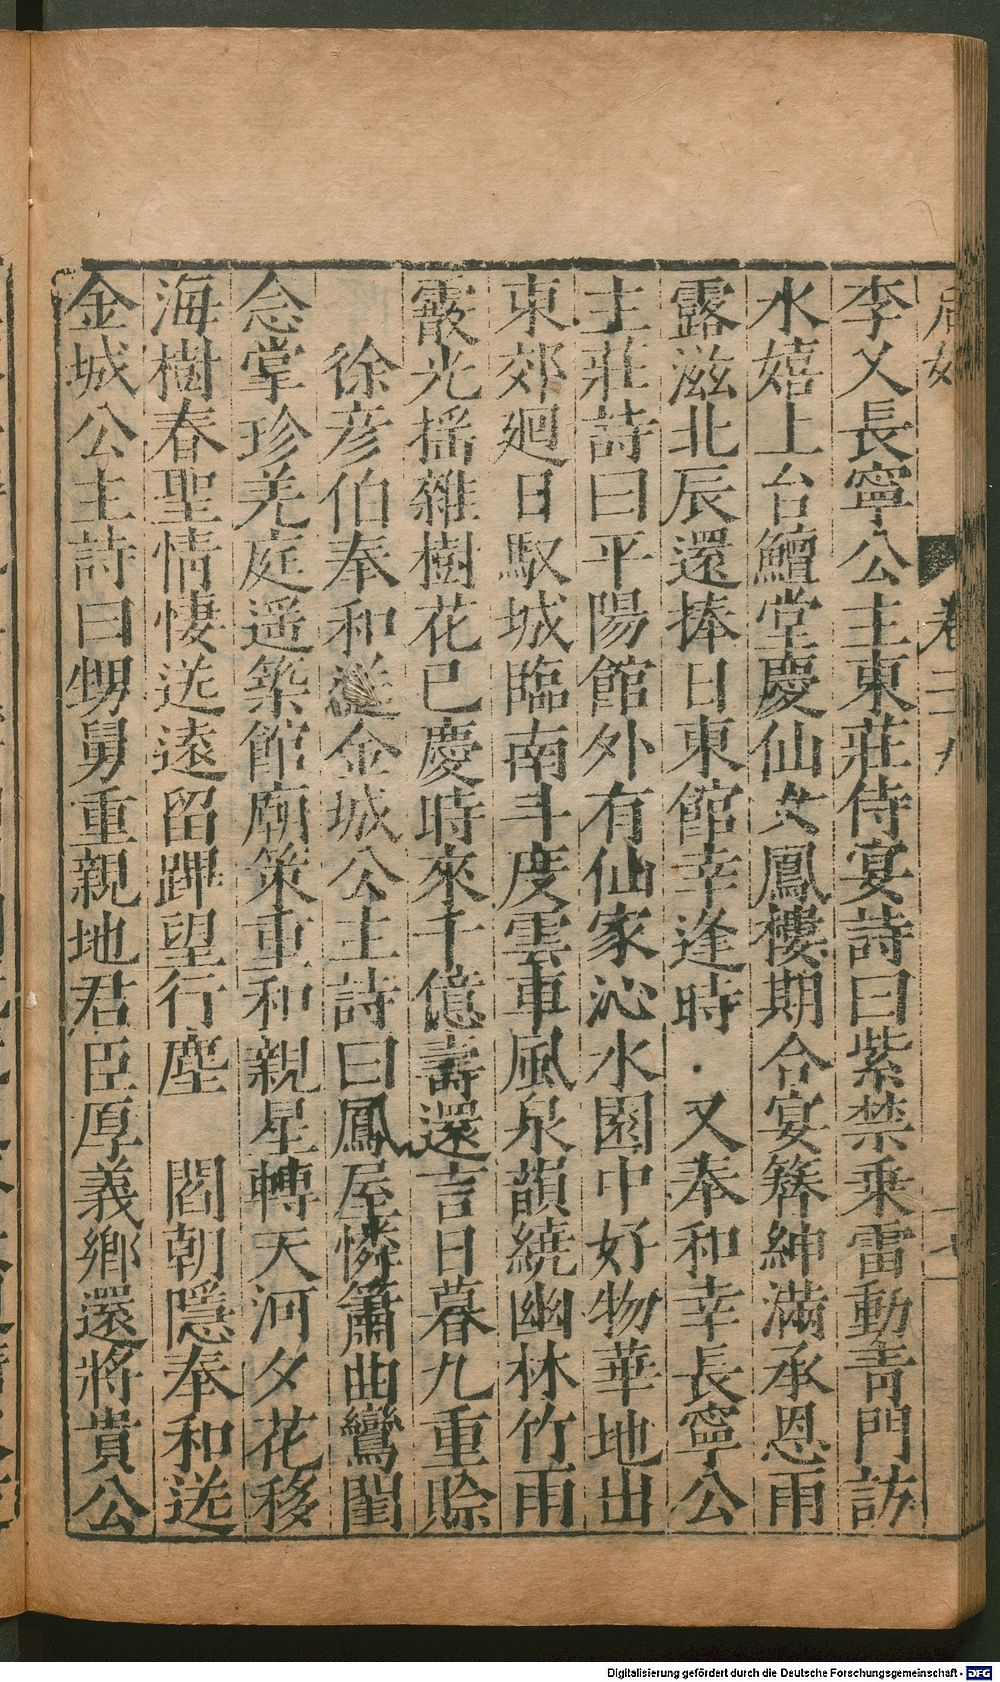 李乂長寧公主東莊侍宴詩曰紫禁乗雷動青門訪
水嬉上台鱣堂慶仙女鳳樓期合宴簪紳滿承恩雨
露滋北辰還捧日東館幸逢時・又奉和幸長寧公
主莊詩曰平陽館外有仙家沁水園中好物華地出
東郊廻日馭城臨南斗度雲車風泉韻繞幽林竹雨
霰光揺雜樹花已慶時來千億壽還言日暮九重賒
徐彦伯奉和送金城公主詩曰鳳屋憐簫曲鸞閨
念掌珍羌庭遥築館廟策重和親星轉天河夕花移
海樹春聖情悽送逺留蹕望行塵　閻朝隱奉和送
金城公主詩曰甥舅重親地君臣厚義鄉還將貴公
卷三
Digitalisierung gefördert durch die Deutsche Forschungsgemeinschaft - DFG